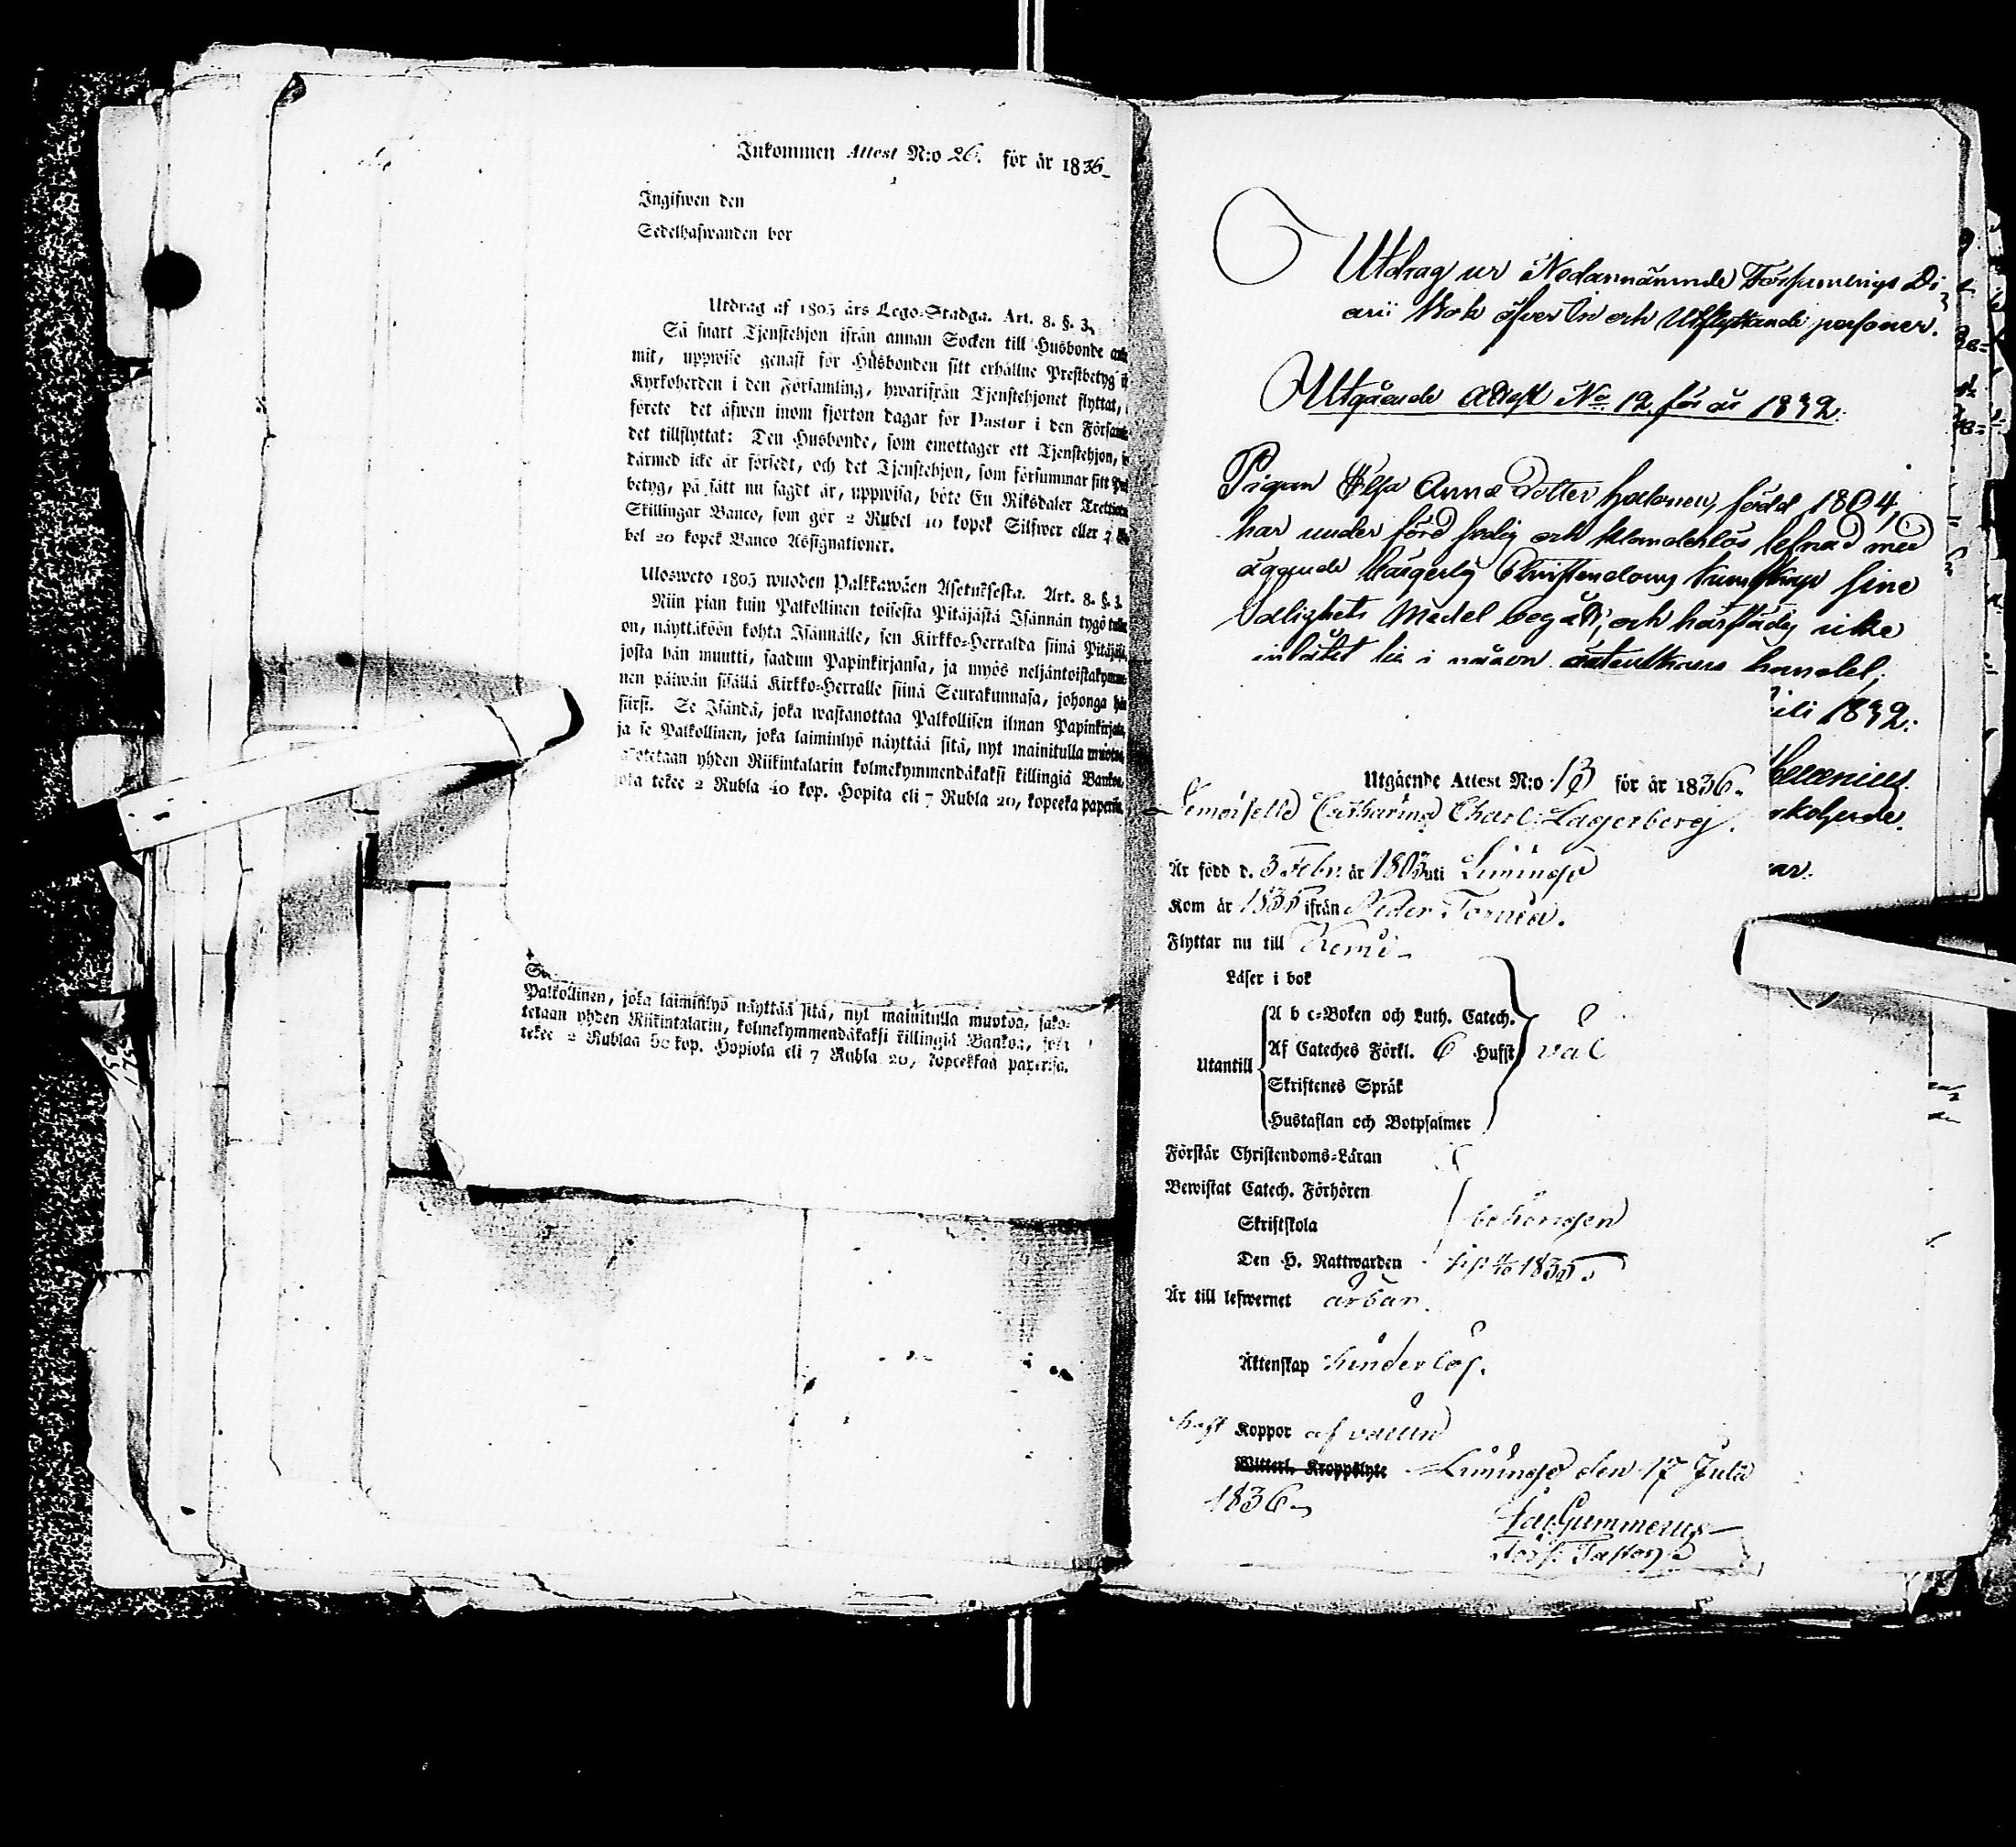 Inkommen Attest N:o 26. för år 1836
Ingifwen den
Sedelhafwanden bor
Utdrag af 1805 års Lego-Stadga. Art. 8. §. 3.
Så snart Tjenstehjon ifrån annan Socken till Husbonde
mit, uppwise genast för Husbonden sitt erhållne Prestbetyg
Kyrkoherden i den Församling, hwarifrån Tjenstehjonet flyttat,
förete det äfwen inom fjorton dagar för Pastor i den
det tillflyttat: Den Husbonde, som emottager ett Tjenstehjon,
därmed icke är försedt, och det Tjenstehjon, som försummar sitt
betyg, på sätt nu sagdt är, uppwisa, böte En Riksdaler
Skillingar Banco, som gör 2 Rubel 40 kopek Silfwer eller 7
bel 20 kopek Banco Assignationer.
Ulosweto 1805 wuoden Palkkawäen Asetuksesta. Art. 8. §. 3.
Niin pian kuin Palkollinen toisesta Pitäjästä Isännän tygö
on, näyttäköön kohta Isännälle, sen Kirkko-Herralda siinä
josta hän muutti, saadun Papinkirjansa, ja myös
nen päiwän sisällä Kirkko-Herralle siinä Seurakunnasa, johonga
siirsi. Se Isändä, joka wastanottaa Palkollisen ilman
ja se Palkollinen, joka laiminlyö näyttää sitä, nyt mainitulla
yhden Riikintalarin kolmekymmendäkaksi killingiä
tekee 2 Rubla 40 kop. Hopita eli 7 Rubla 20, kopeeka
Palkollinen, joka laiminlyö näyttää sitä, nyt mainitulla muotoa, sako-
tetaan yhden Riikintalarin, kolmekymmendäkaksi killingiä Bankoa, joka
tekee 2 Rublaa kop. Hopiota eli 7 Rubla 20, kopeekkaa paperisa.
Utdrag ur Nedannämnde Församlings Di
arii Bok öfver In och Utflyttande personer.
Utgående Attest No 12 för år 1832.
Pigan Elsa Anna dotter Halonen, född 1804,
har under förd fredlig och klanderlös lefnad med
ägande Christendoms kunskap sine
Salighets Medel begått, och härstädes icke
inlåtit sig i någon handel,
1832.
Utgående Attest N:o 13 för år 1836.
Catharina Charl: Lagerberg.
Är född d. 3 Febr. år 1803 uti Limingo
Kom år 1835 ifrån Neder Torneå.
Flyttar nu till Kemi
Läser i bok
A b c-Boken och Luth. Catech.
Af Cateches Förkl. 6 Hufst. väl
Utantill
Skriftenes Språk
Hustaflan och Botpsalmer
Förstår Christendoms-Läran
Bewistat Catech. Förhören
Skriftskola behörigen
Den H. Nattwarden 1835
Är till lefwernet ärbar.
Äktenskap hinderlös.
haft Koppor af vaccin
Witterl. Kroppslyte Limingo den 17 Julii
1836
Gummerus